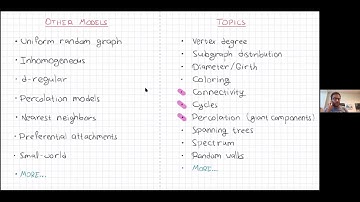 OTHER MODELS
• Uniform random graph
• Inhomogeneous
• d-regular
• Percolation models
• Nearest neighbors
• Preferential attachments
• Small-world
• MORE...
TOPICS
• Vertex degree
• Subgraph distribution
• Diameter/Girth
• Coloring
• Connectivity
• Cycles
• Percolation (giant components)
• Spanning trees
• Spectrum
• Random walks
• MORE...